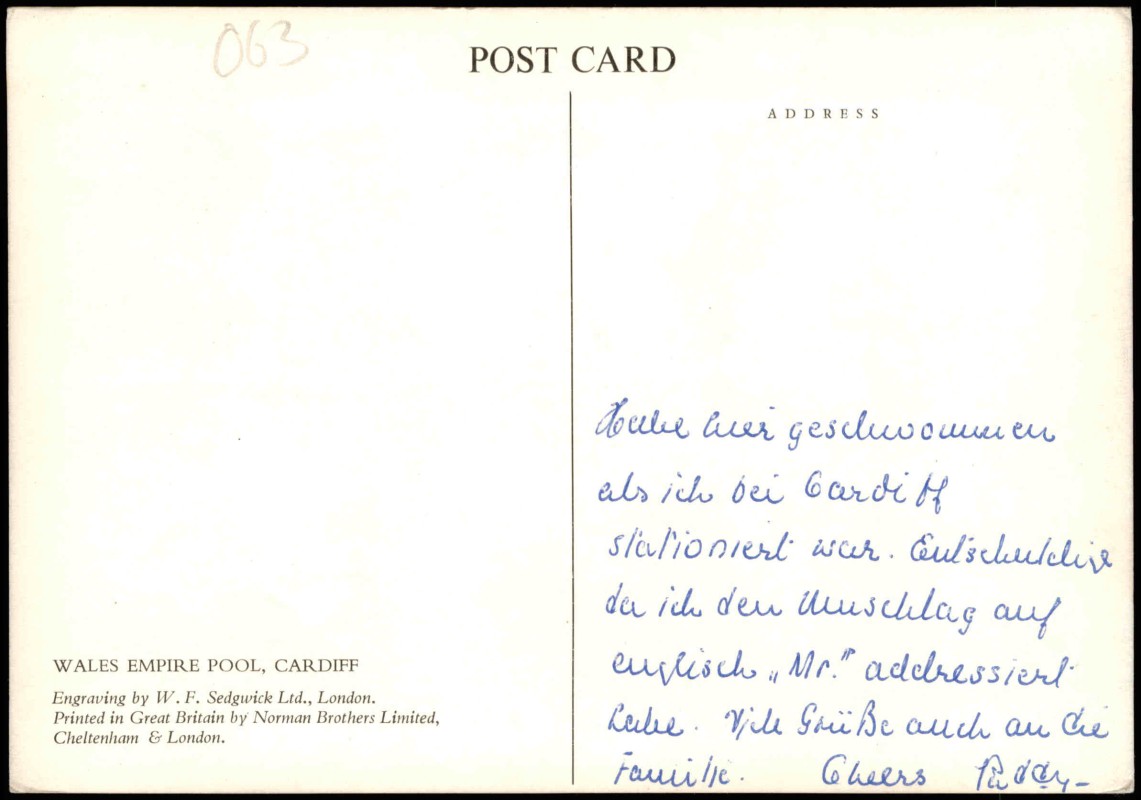 063
POST CARD
ADDRESS
Habe hier geschwommen
als ich bei Cardiff
stationiert war. Entschuldige
da ich den Umschlag auf
englisch „Mr.“ addressiert
habe. Viele Grüße auch an die
Familie. Cheers Paddy-
WALES EMPIRE POOL, CARDIFF
Engraving by W. F. Sedgwick Ltd., London.
Printed in Great Britain by Norman Brothers Limited,
Cheltenham & London.